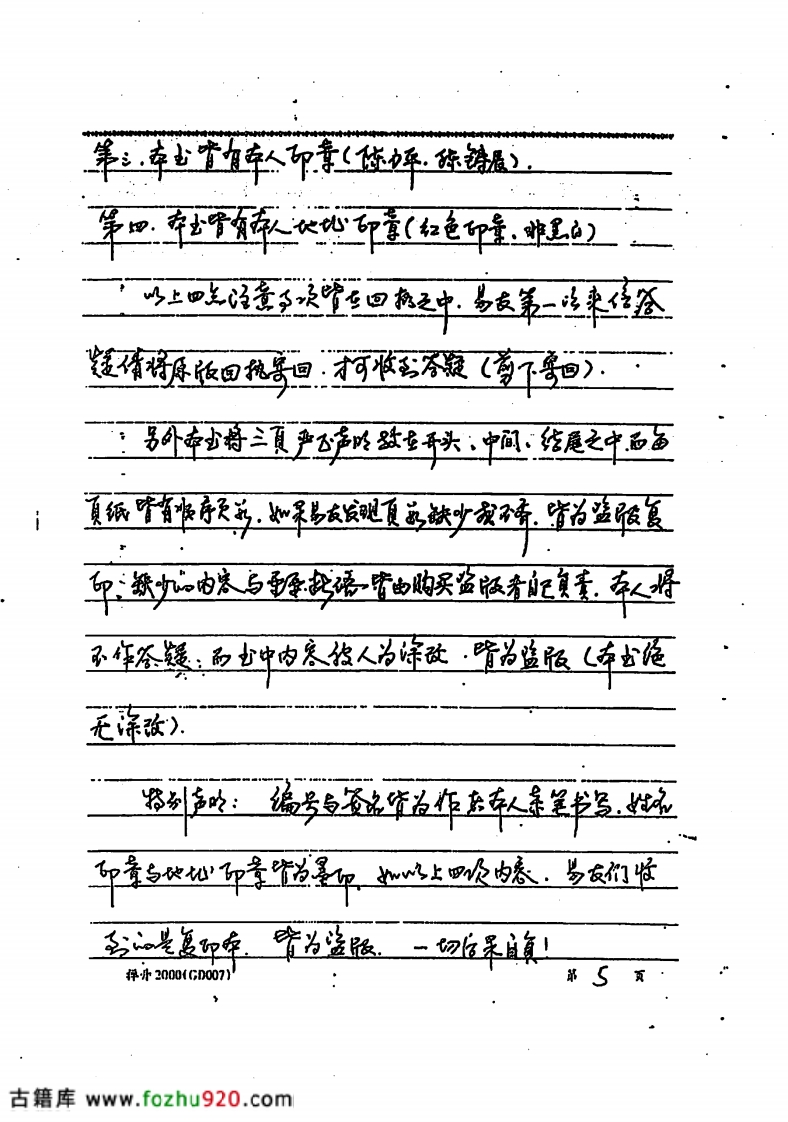 第三.本书皆有本人印章(陈力平.陈锦展).
第四.本书皆有本人地址印章(红色印章.非黑白)
以上四点注意事项皆在回执之中.易友第一次来信答
疑请将原版回执寄回.才可收到答疑(剪下寄回).
另外本书将三页严正声明放在开头、中间、结尾之中.而每
页纸皆有顺序页数.如果易友发现页数缺少或不齐.皆为盗版复
印;缺少的内容与皆由购买盗版者自己负责.本人将
不作答疑;而书中内容被人为涂改.皆为盗版(本书绝
无涂改).
特别声明:编号与签名皆为作者本人亲笔书写.姓名
印章与地址印章皆为墨印.如以上四项内容.易友们收
到的是复印本.皆为盗版.一切后果自负!
2000(GD007)
第 5 页
古籍库 www.fozhu920.com